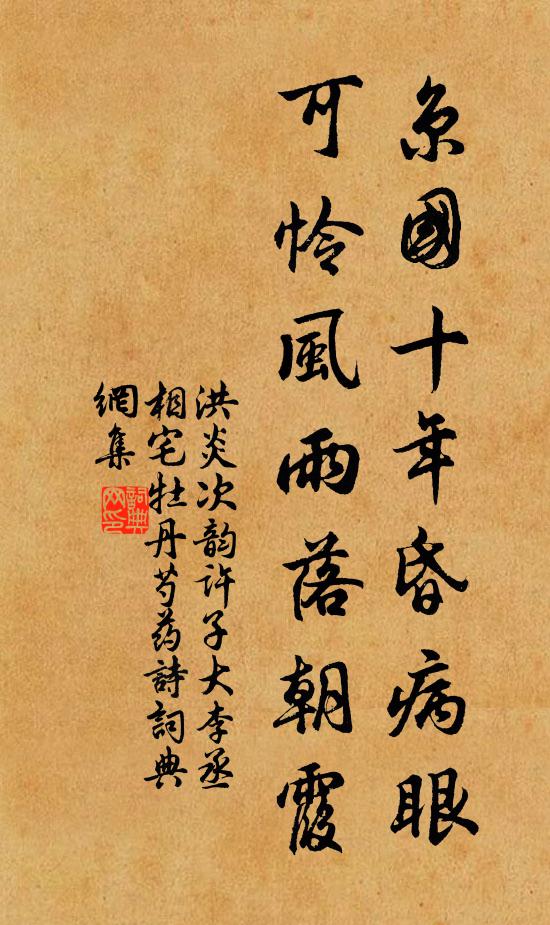 京國十年昏病眼
可憐風雨落朝霞
洪炎次韵許子大李丞
相宅牡丹芍药詩詞典
網集
詞典網印